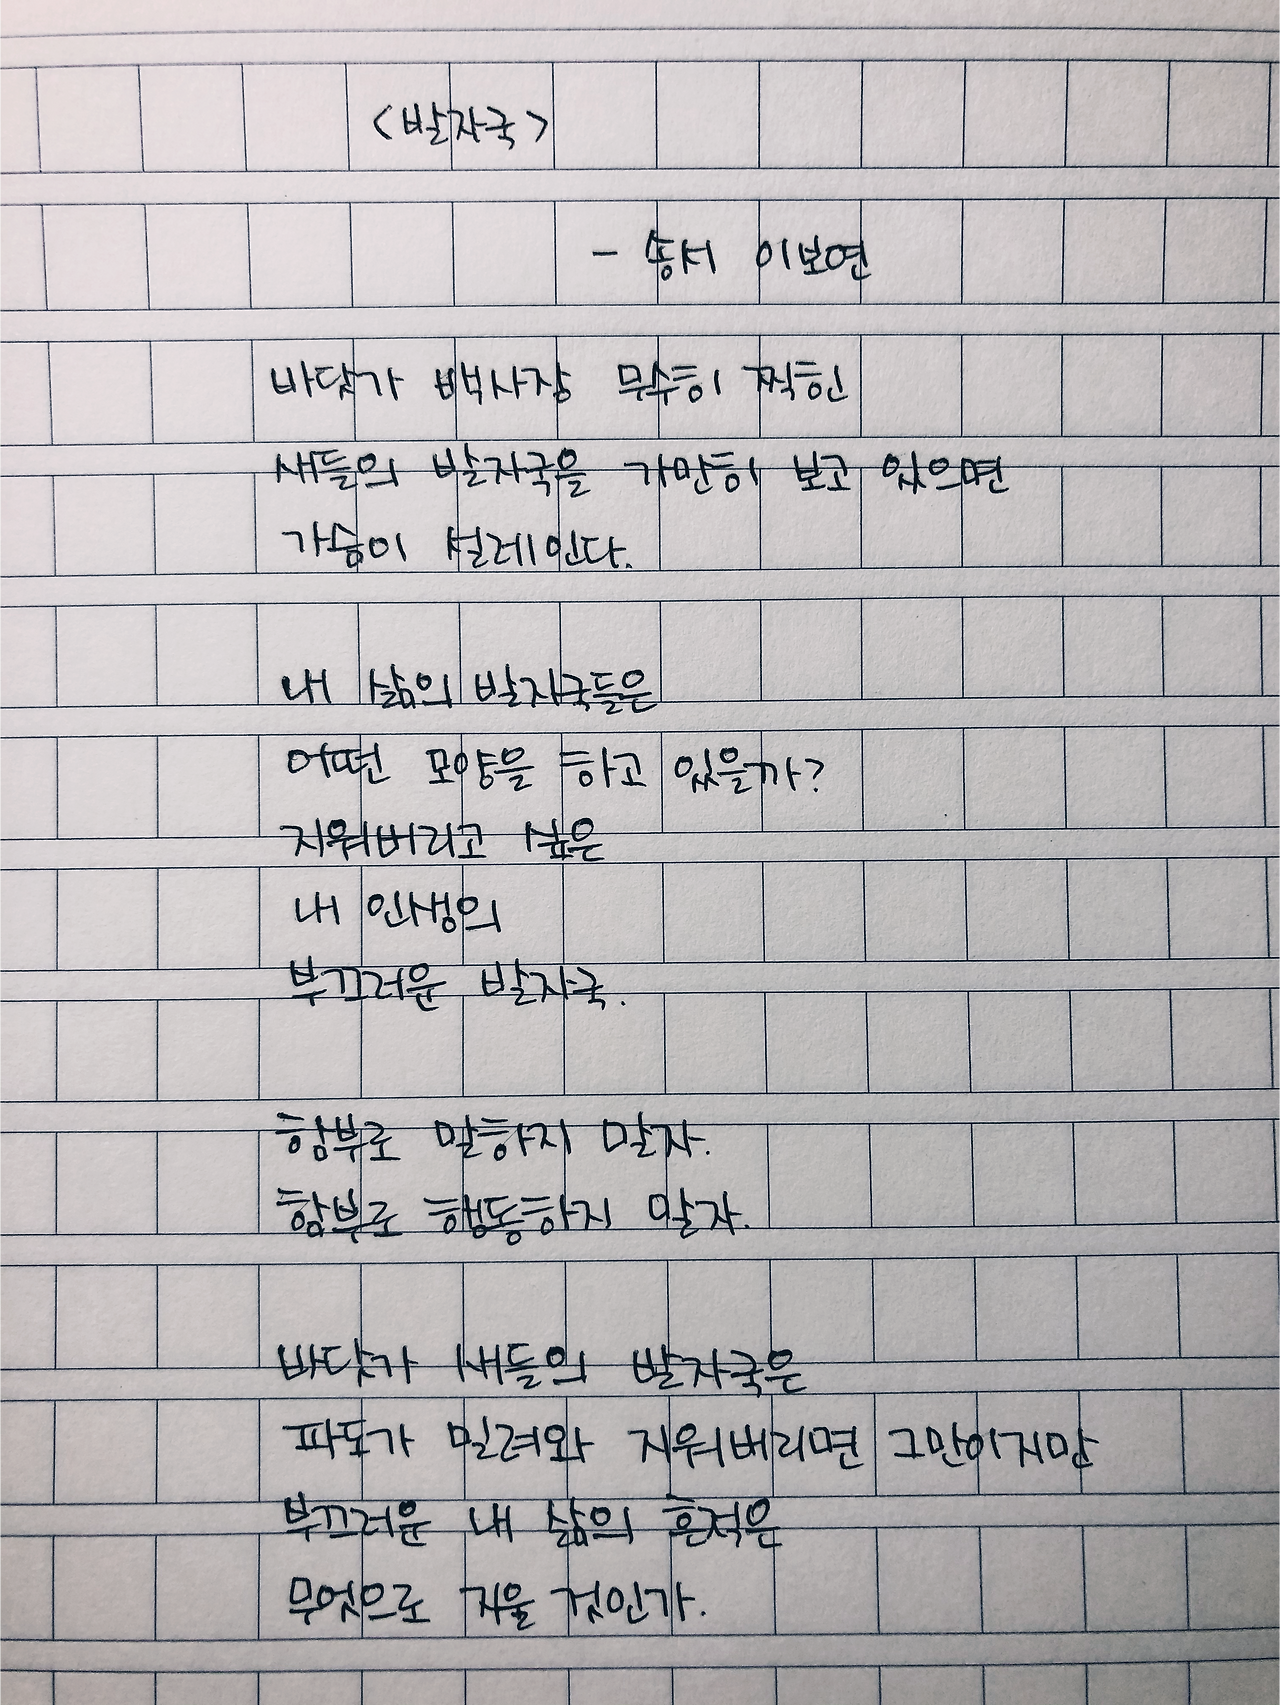 <발자국>
- 송서 이보연
바닷가 백사장 무수히 찍힌
새들의 발자국을 가만히 보고 있으면
가슴이 설레인다.
내 삶의 발자국들은
어떤 모양을 하고 있을까?
지워버리고 싶은
내 인생의
부끄러운 발자국.
함부로 말하지 말자.
함부로 행동하지 말자.
바닷가 새들의 발자국은
파도가 밀려와 지워버리면 그만이지만
부끄러운 내 삶의 흔적은
무엇으로 지울 것인가.